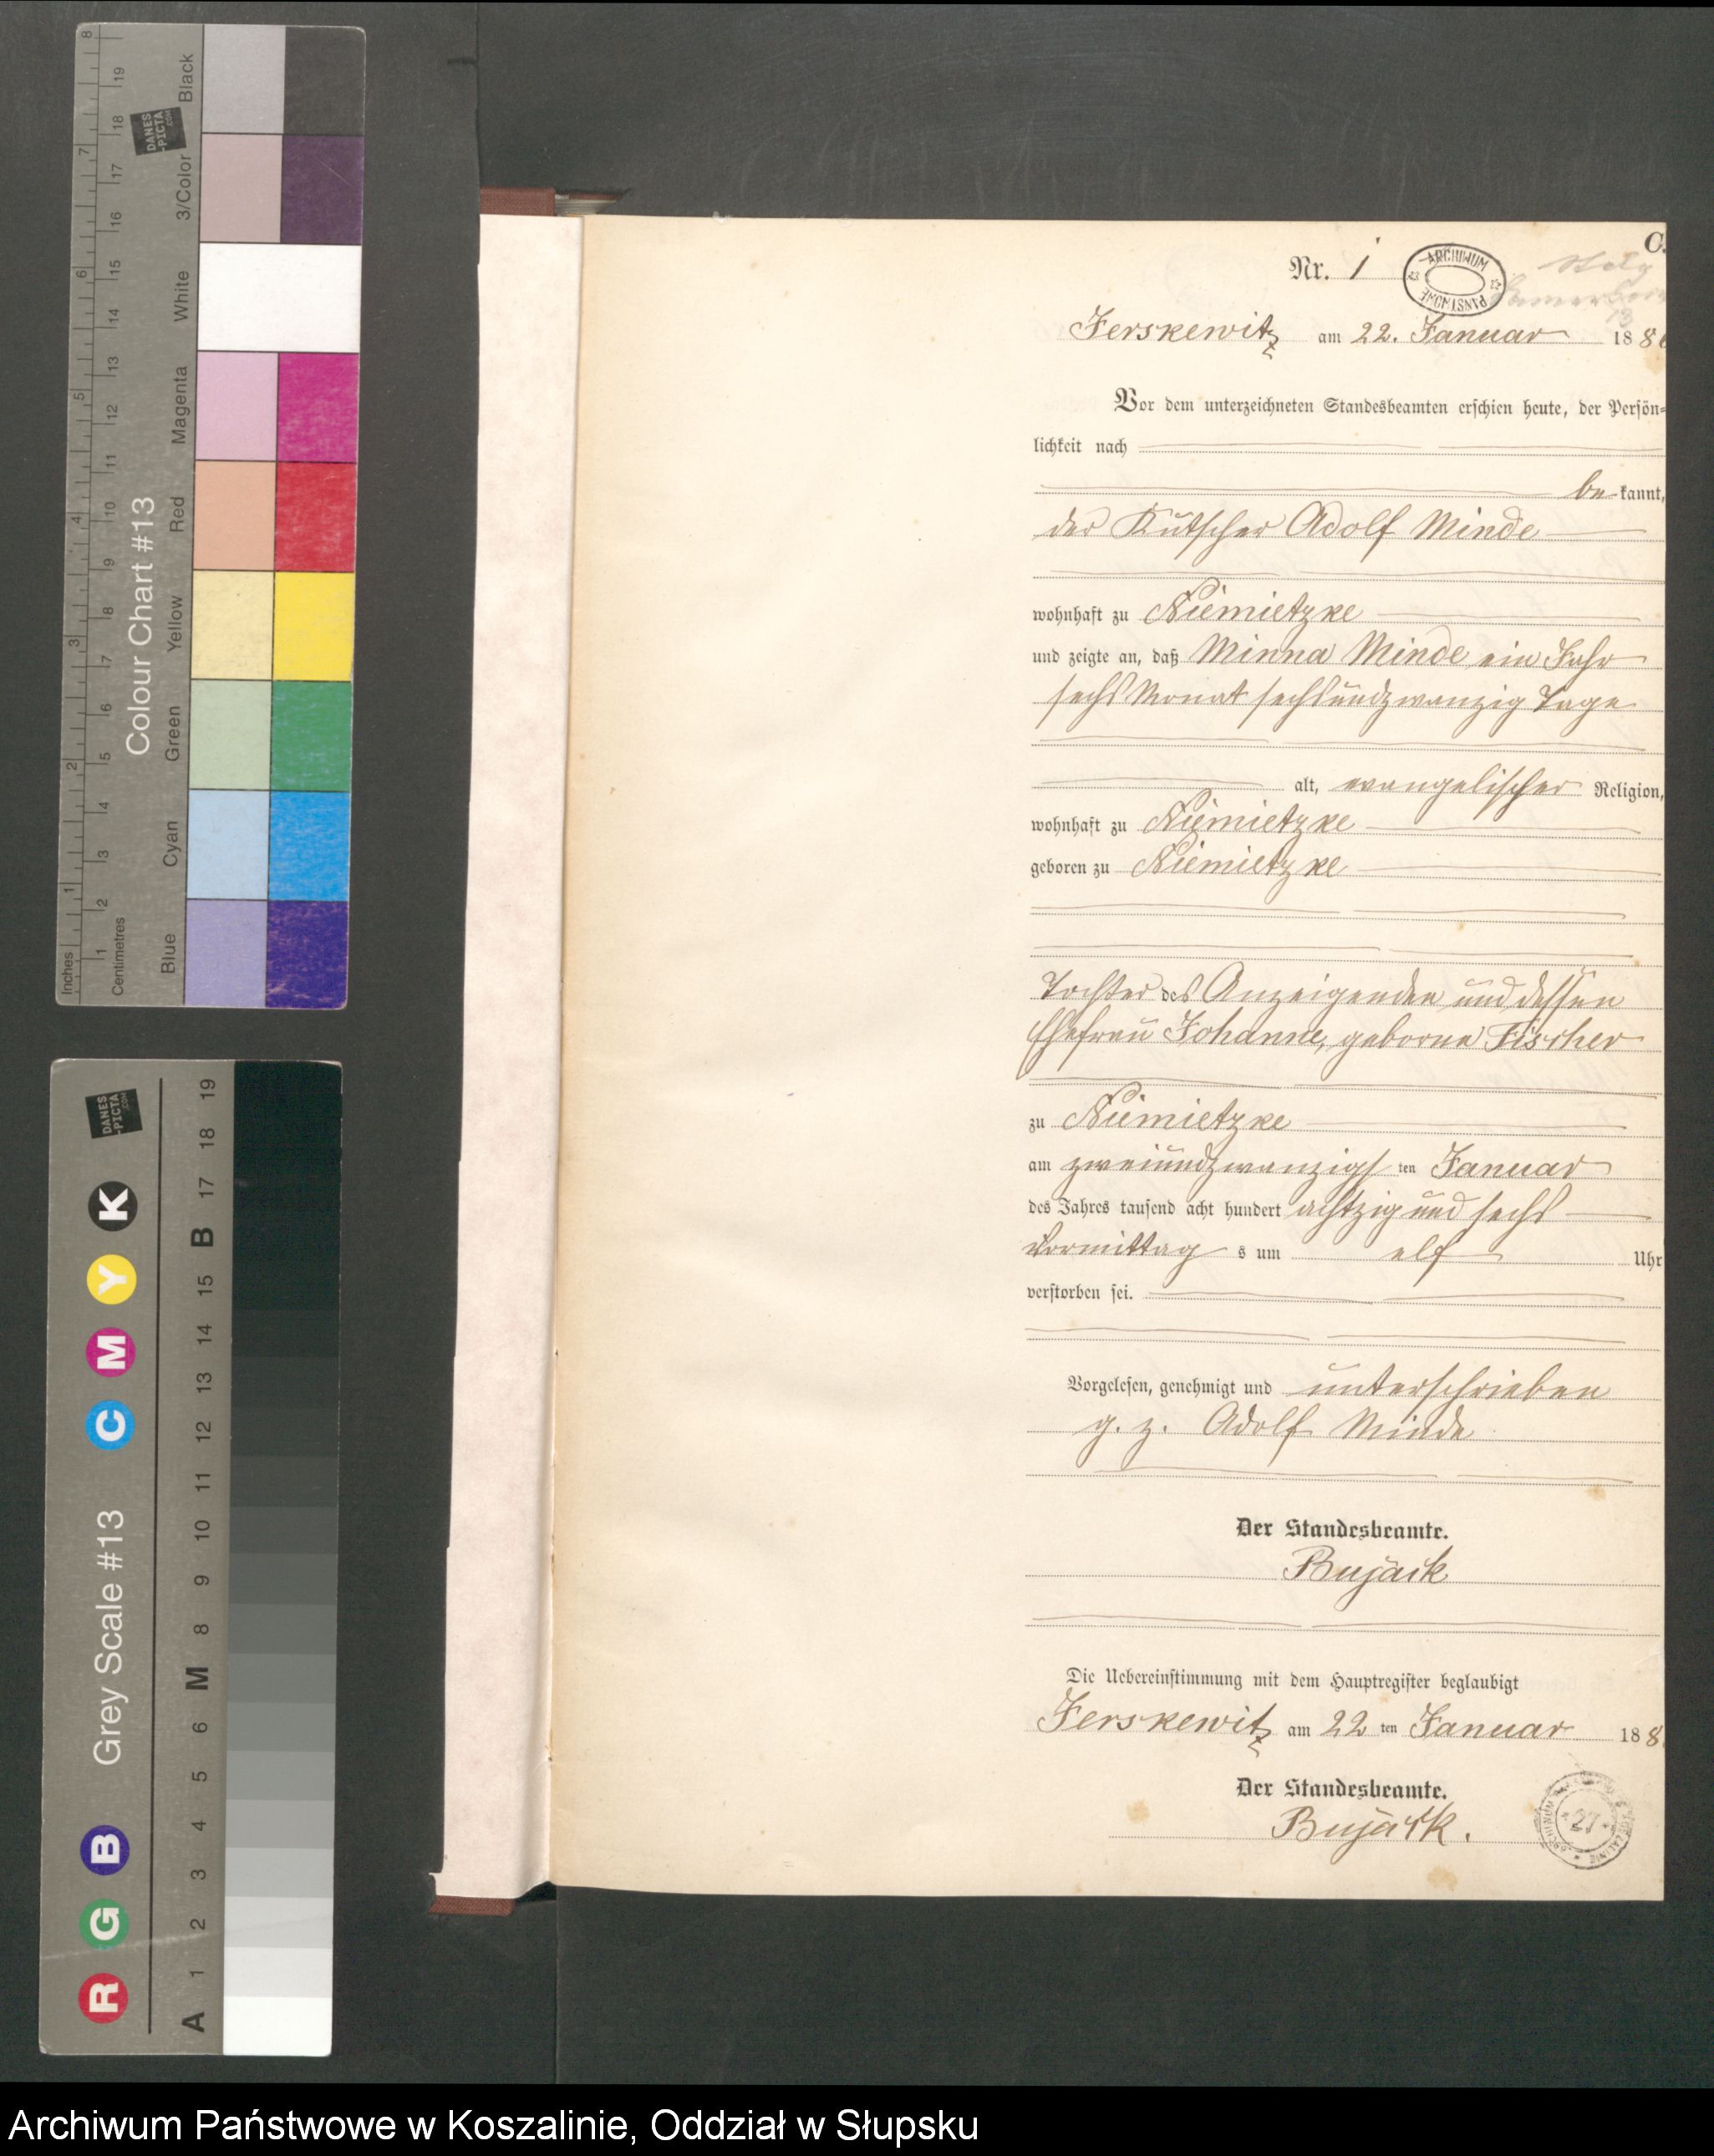 C.
Nr. 1
ARCHIWUM PAŃSTWOWE
Jerskewitz am 22. Januar 188
Vor dem unterzeichneten Standesbeamten erschien heute, der Persön-
lichkeit nach
be kannt,
der Kutscher Adolf Minde
wohnhaft zu Niemietzke
und zeigte an, daß Minna Minde ein Jahr
sechs Monat sechsundzwanzig Tage
alt, evangelischer Religion,
wohnhaft zu Niemietzke
geboren zu Niemietzke
Tochter des Anzeigenden und dessen
Ehefrau Johanne, geborne Fischer
zu Niemietzke
am zweiundzwanzigs ten Januar
des Jahres tausend acht hundert achtzig und sechs
Vormittag s um elf Uhr
verstorben sei.
Vorgelesen, genehmigt und unterschrieben
g. z. Adolf Minde
Der Standesbeamte.
Bujack
Die Uebereinstimmung mit dem Hauptregister beglaubigt
Jerskewitz am 22 ten Januar 188
Der Standesbeamte.
Bujack.
*27*
Colour Chart #13
Blue Cyan Green Yellow Red Magenta White 3/Color Black
Inches 1 2 3 4 5 6 7 8
Centimetres 1 2 3 4 5 6 7 8 9 10 11 12 13 14 15 16 17 18 19
DANES
-PICTA
.COM
Grey Scale #13
R G B C M Y K
A 1 2 3 4 5 6 M 8 9 10 11 12 13 14 15 B 17 18 19
DANES
-PICTA
.COM
Archiwum Państwowe w Koszalinie, Oddział w Słupsku